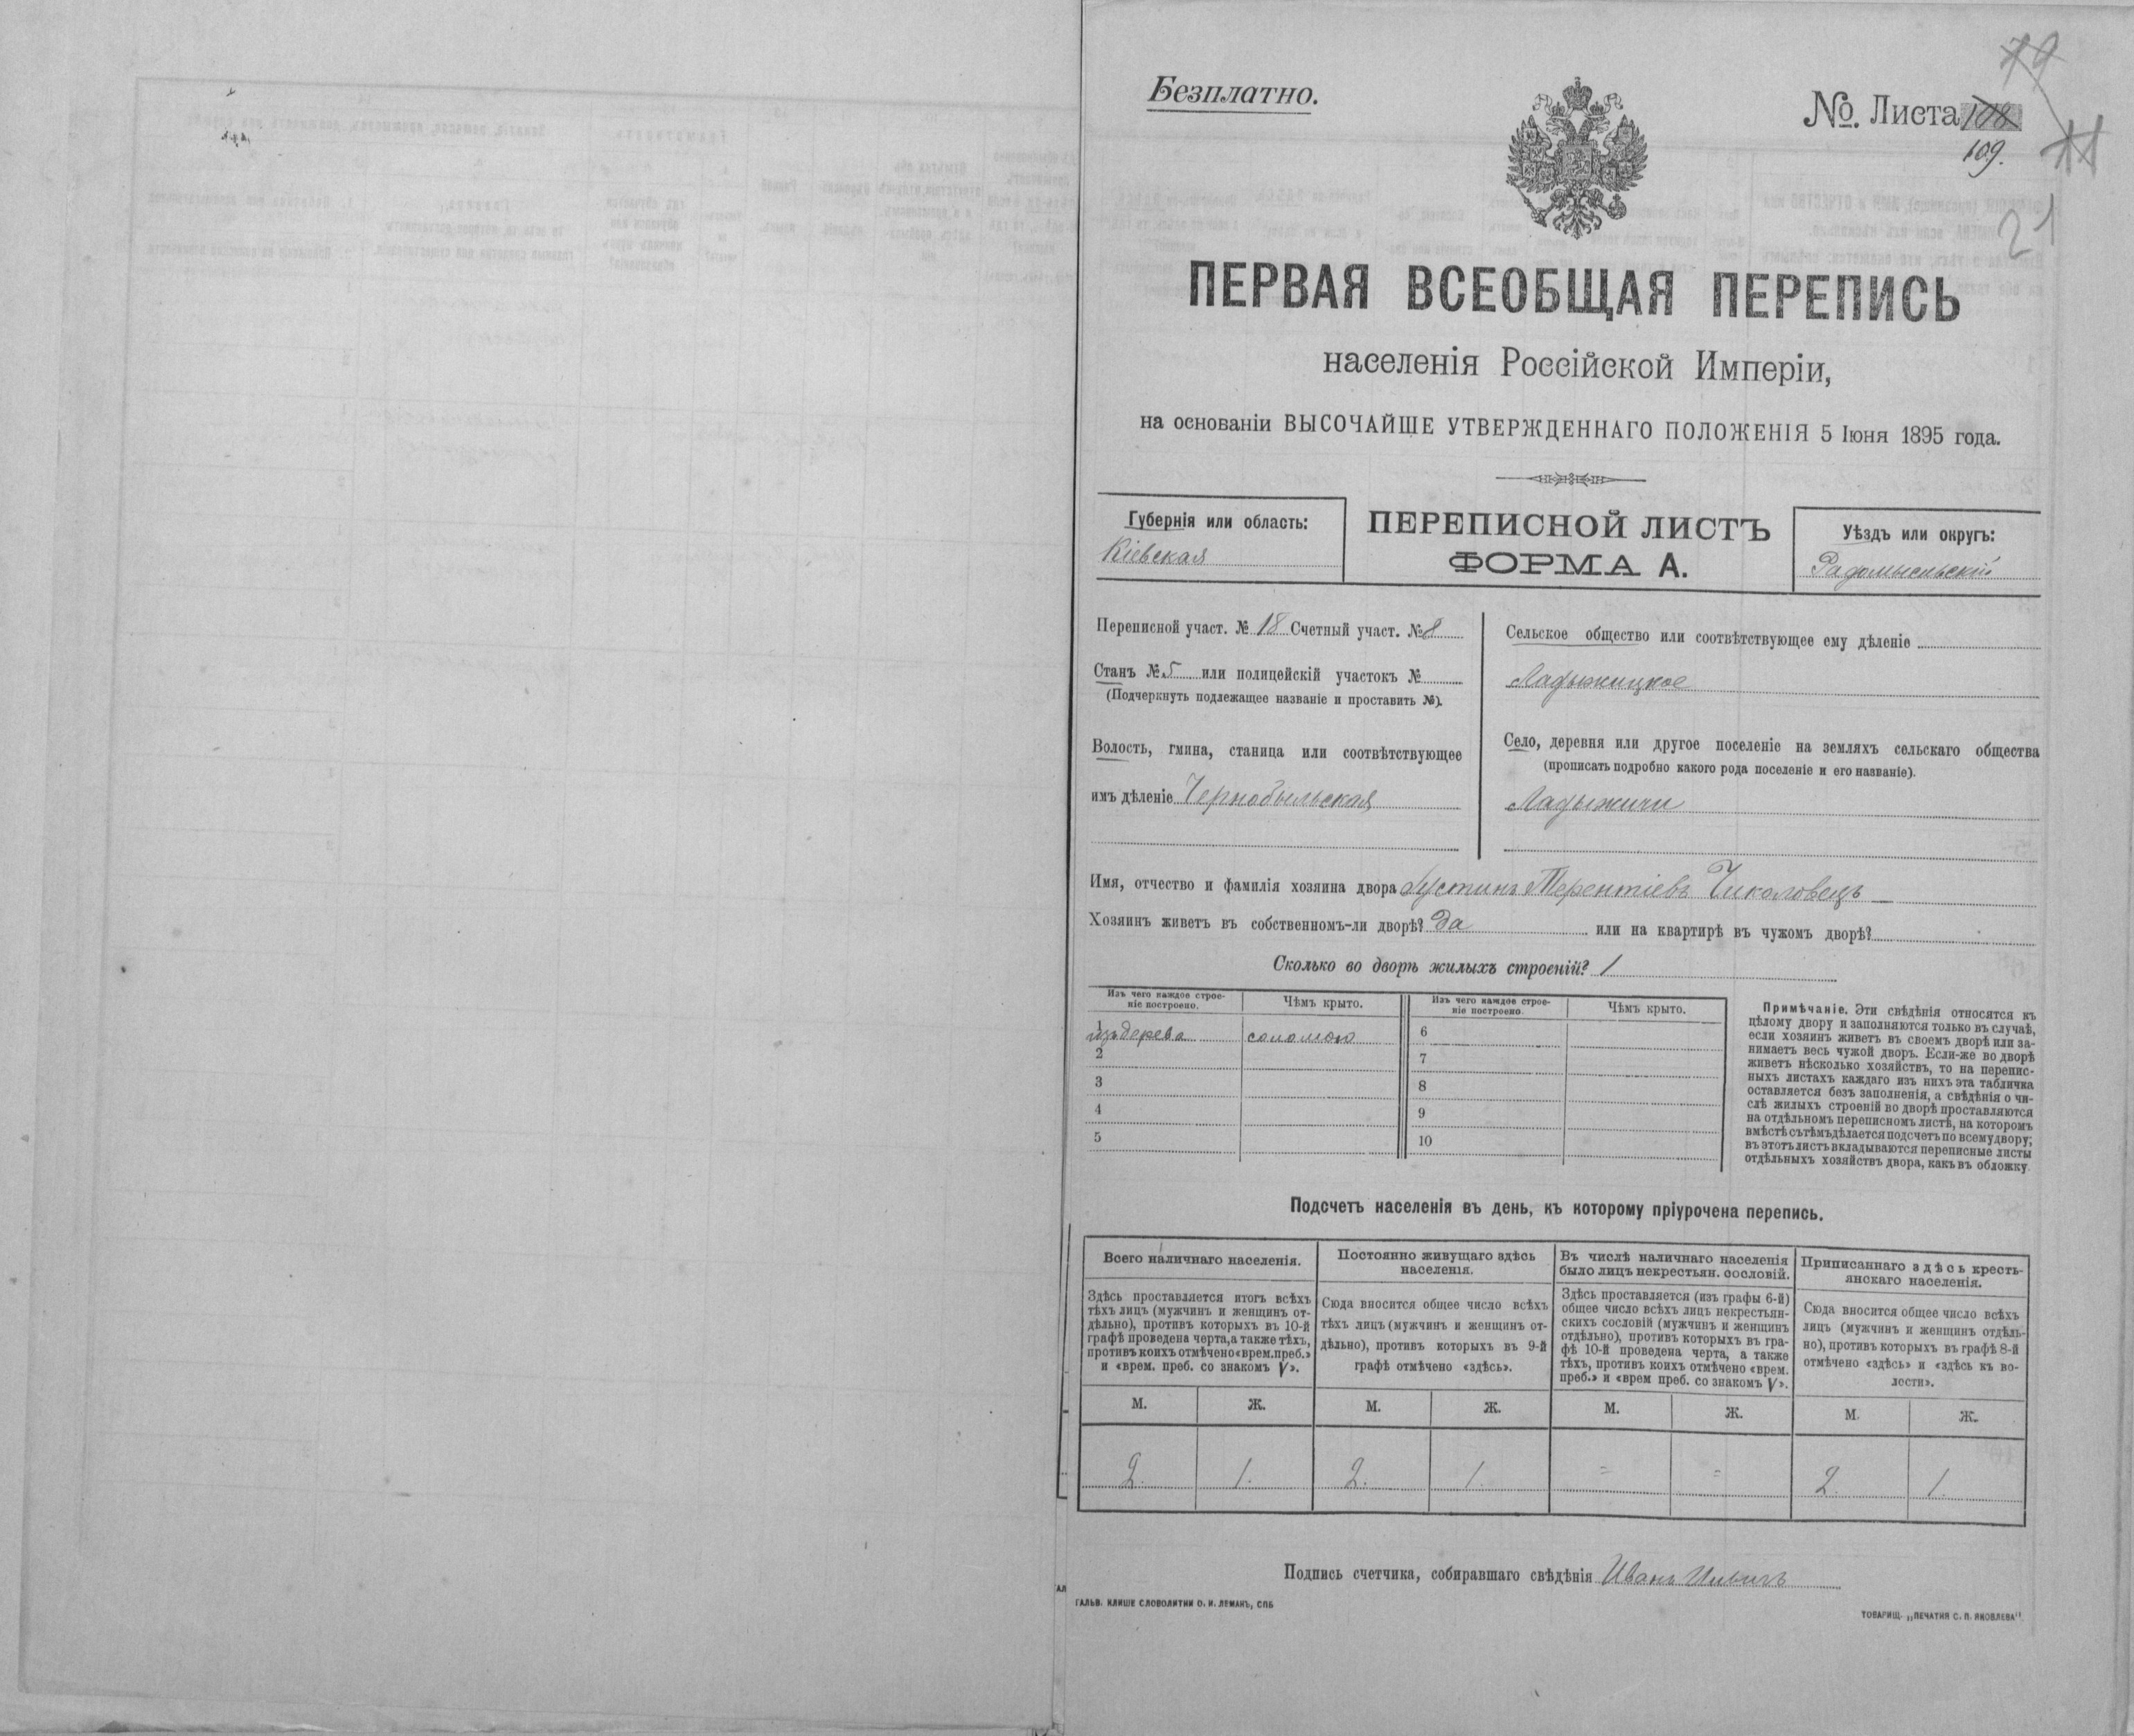 Безплатно.
№ Листа 108
109.
79
21
ПЕРВАЯ ВСЕОБЩАЯ ПЕРЕПИСЬ
населенія Россійской Имперіи,
на основаніи ВЫСОЧАЙШЕ УТВЕРЖДЕННАГО ПОЛОЖЕНІЯ 5 Іюня 1895 года.
Губернія или область:
Кіевская
ПЕРЕПИСНОЙ ЛИСТЪ
ФОРМА А.
Уѣздъ или округъ:
Радомысльскій
Переписной участ. № 18 Счетный участ. № 8
Станъ № 5 или полицейскій участокъ №
(Подчеркнуть подлежащее названіе и проставить №).
Волость, гмина, станица или соотвѣтствующее
имъ дѣленіе Чернобыльская
Сельское общество или соотвѣтствующее ему дѣленіе
Ладыжицкое
Село, деревня или другое поселеніе на земляхъ сельскаго общества
(прописать подробно какого рода поселеніе и его названіе).
Ладыжичи
Имя, отчество и фамилія хозяина двора Устинъ Терентіевъ Чиколовецъ
Хозяинъ живетъ въ собственномъ-ли дворѣ? Да или на квартирѣ въ чужомъ дворѣ?
Сколько во дворѣ жилыхъ строеній? 1
Изъ чего каждое строе-
ніе построено.
Чѣмъ крыто.
Изъ чего каждое строе-
ніе построено.
Чѣмъ крыто.
1 изъ дерева соломою 6
2 7
3 8
4 9
5 10
Примѣчаніе. Эти свѣдѣнія относятся къ
цѣлому двору и заполняются только въ случаѣ,
если хозяинъ живетъ въ своемъ дворѣ или за-
нимаетъ весь чужой дворъ. Если-же во дворѣ
живетъ нѣсколько хозяйствъ, то на перепис-
ныхъ листахъ каждаго изъ нихъ эта табличка
оставляется безъ заполненія, а свѣдѣнія о чи-
слѣ жилыхъ строеній во дворѣ проставляются
на отдѣльномъ переписномъ листѣ, на которомъ
вмѣстѣ съ тѣмъ дѣлается подсчетъ по всему двору;
въ этотъ листъ вкладываются переписные листы
отдѣльныхъ хозяйствъ двора, какъ въ обложку
Подсчетъ населенія въ день, къ которому пріурочена перепись.
Всего наличнаго населенія.
Здѣсь проставляется итогъ всѣхъ
тѣхъ лицъ (мужчинъ и женщинъ от-
дѣльно), противъ которыхъ въ 10-й
графѣ проведена черта, а также тѣхъ,
противъ коихъ отмѣчено «врем. преб.»
и «врем. преб. со знакомъ V».
Постоянно живущаго здѣсь
населенія.
Сюда вносится общее число всѣхъ
тѣхъ лицъ (мужчинъ и женщинъ от-
дѣльно), противъ которыхъ въ 9-й
графѣ отмѣчено «здѣсь».
Въ числѣ наличнаго населенія
было лицъ некрестьян. сословій.
Здѣсь проставляется (изъ графы 6-й)
общее число всѣхъ лицъ некрестьян-
скихъ сословій (мужчинъ и женщинъ
отдѣльно), противъ которыхъ въ гра-
фѣ 10-й проведена черта, а также
тѣхъ, противъ коихъ отмѣчено «врем.
преб.» и «врем преб. со знакомъ V».
Приписаннаго здѣсь кресть-
янскаго населенія.
Сюда вносится общее число всѣхъ
лицъ (мужчинъ и женщинъ отдѣль-
но), противъ которыхъ въ графѣ 8-й
отмѣчено «здѣсь» и «здѣсь къ во-
лости».
М. Ж. М. Ж. М. Ж. М. Ж.
2. 1. 2. 1. = = 2. 1.
Подпись счетчика, собиравшаго свѣдѣнія Иванъ
ГАЛЬВ. КЛИШЕ СЛОВОЛИТНИ О. И. ЛЕМАНЪ, СПБ
ТОВАРИЩ. „ПЕЧАТНЯ С. П. ЯКОВЛЕВА".